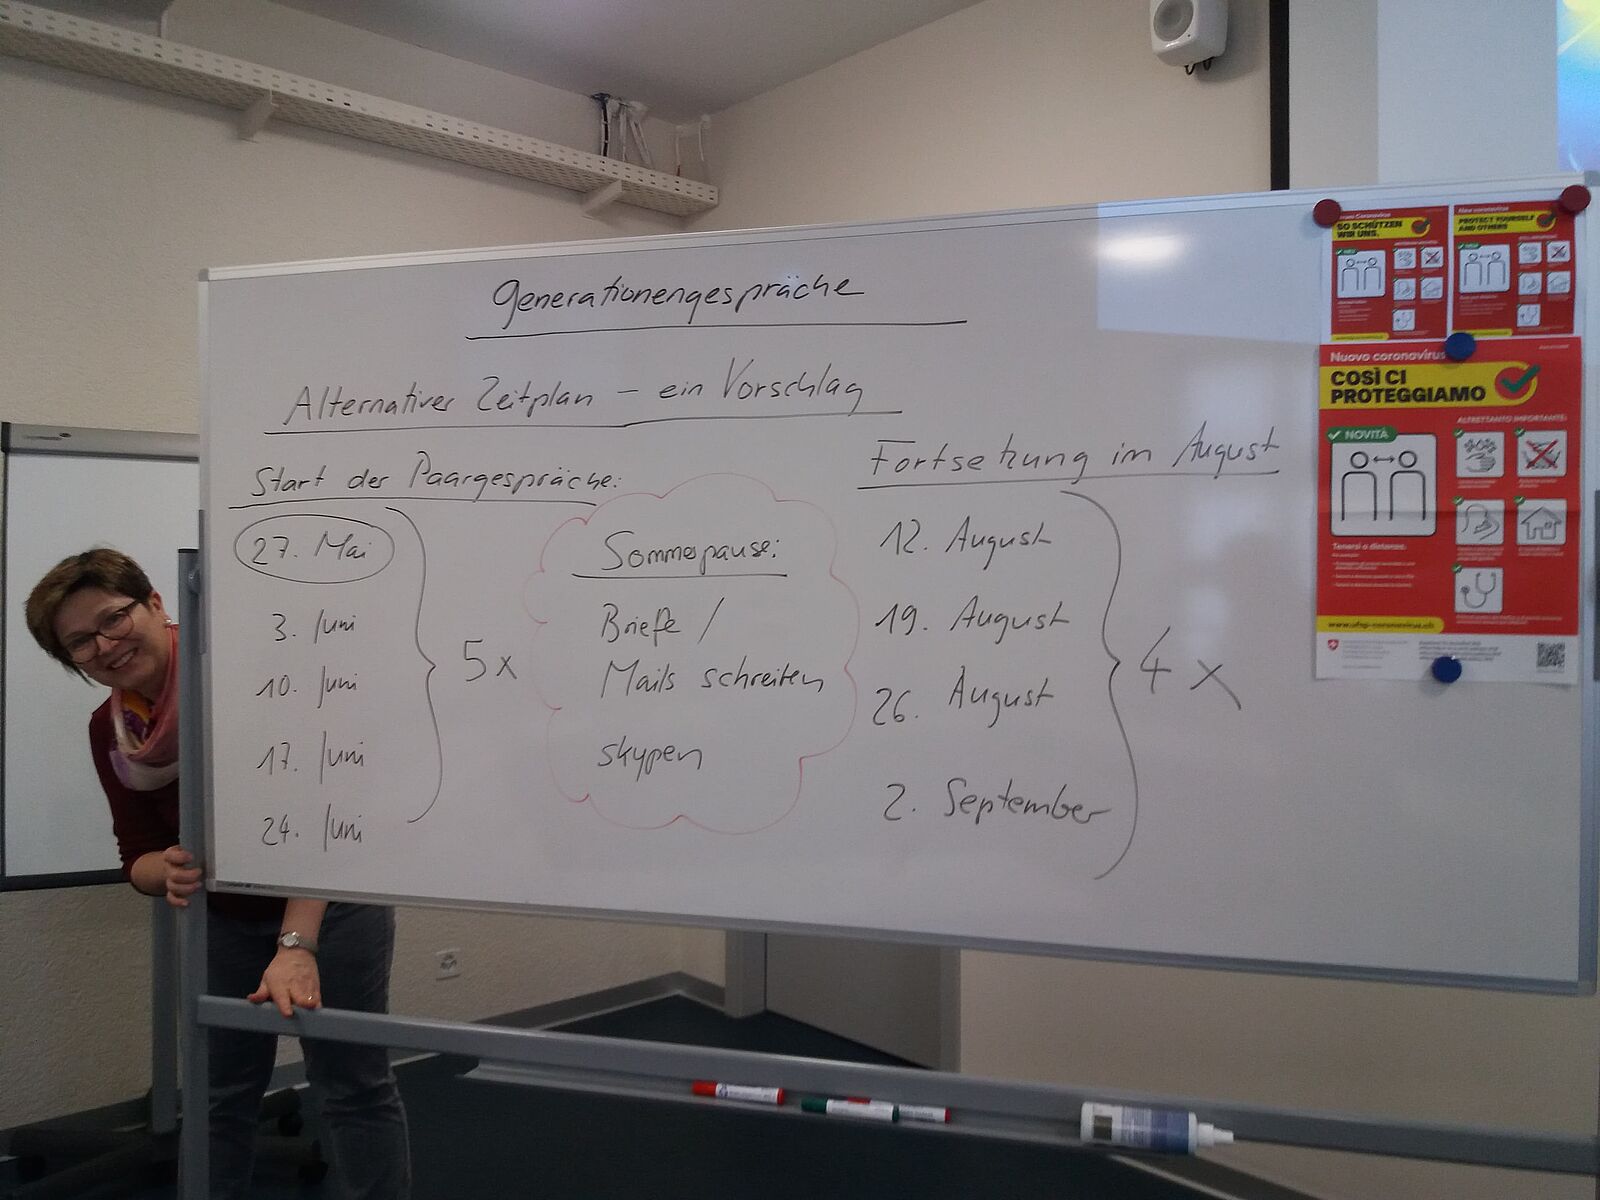 Generationengespräche
Alternativer Zeitplan – ein Vorschlag
Start der Paargespräche:
27. Mai
3. Juni
10. Juni
17. Juni
24. Juni
5 x
Sommerpause:
Briefe /
Mails schreiben
skypen
Fortsetzung im August
12. August
19. August
26. August
2. September
4 x
Coronavirus
SO SCHÜTZEN
WIR UNS.
New coronavirus
PROTECT YOURSELF
AND OTHERS
Nuovo coronavirus
COSÌ CI
PROTEGGIAMO
ALTRETTANTO IMPORTANTE:
NOVITÀ
Tenersi a distanza.
www.ufsp-coronavirus.ch